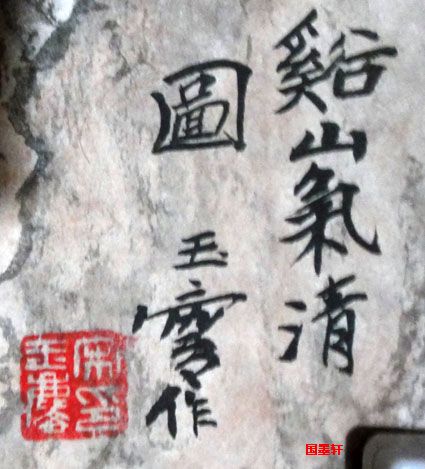 谿山氣清
圖
玉寶作
国玉轩